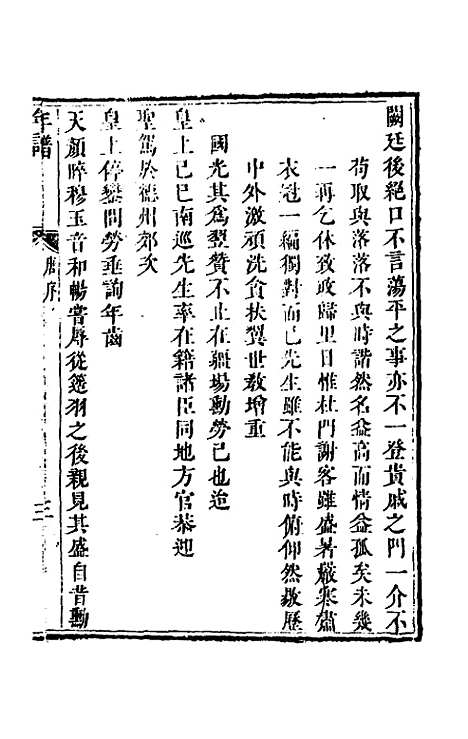 闕廷後絕口不言蕩平之事亦不一登貴戚之門一介不
苟取與落落不與時諧然名益高而情益孤矣未幾
一再乞休致政歸里日惟杜門謝客雖盛暑嚴寒肅
衣冠一編獨對而已先生雖不能與時俯仰然敭歷
中外激頑洗貪扶翼世教增重
國光其爲翌贊不止在疆場勳勞已也迨
皇上己巳南巡先生率在籍諸臣同地方官恭迎
聖駕於德州郊次
皇上停鑾問勞垂詢年齒
天顔睟穆玉音和暢嘗厚從筵羽之後親見其盛自昔勳
年譜
序
三